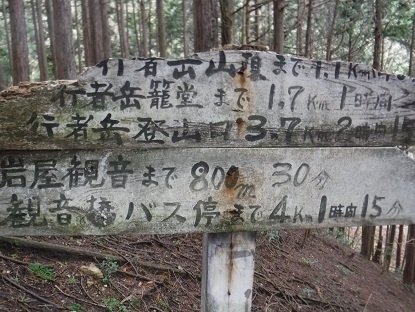 行者岳山頂まで1.1Km
行者岳籠堂まで1.7Km1時間
行者岳登山口3.7Km2時間
岩屋観音まで800m30分
観音橋バス停まで4Km1時間15分